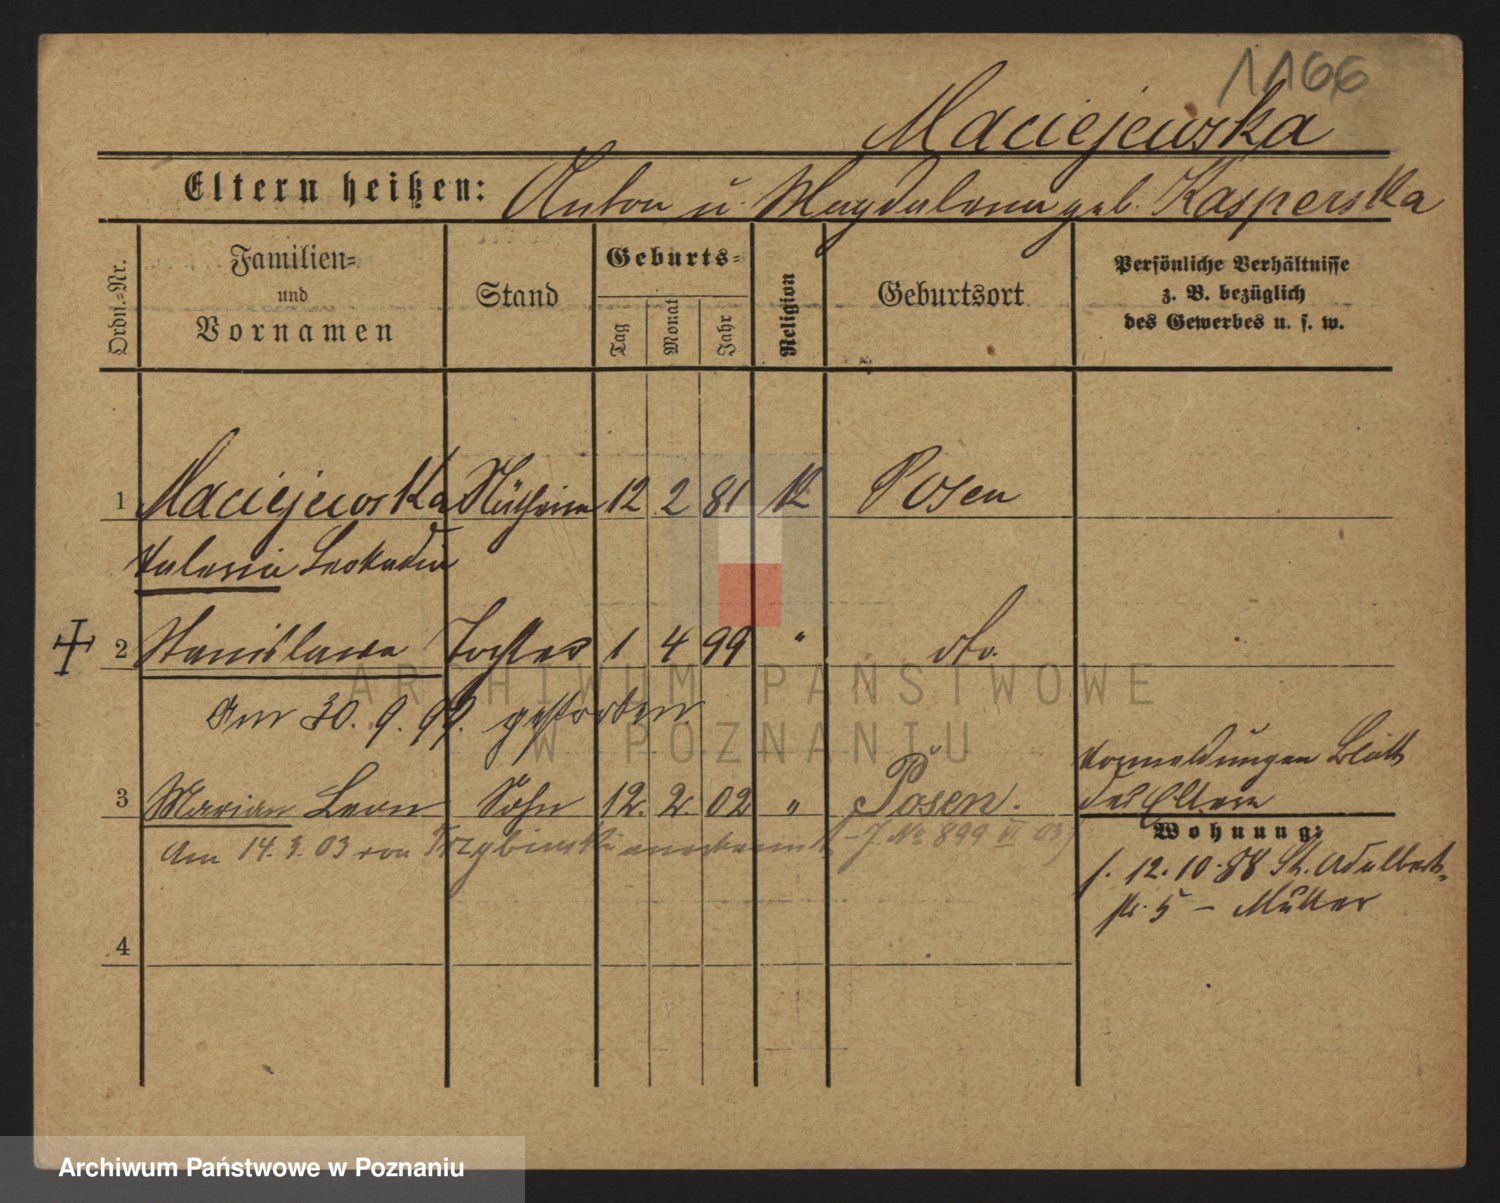 1166
Maciejewska
Eltern heißen: Anton u. Magdalena geb. Kasperska
Ordn.-Nr.
Familien-
und
Vornamen
Stand
Geburts-
Tag
Monat
Jahr
Religion
Geburtsort
Persönliche Verhältnisse
z. B. bezüglich
des Gewerbes u. s. w.
1 Maciejewska 12 2 81 k Posen
Valeria Leokadia
2 Stanislawa Tochter 1 4 99 " do.
Am 30. 9. 99. gestorben
3 Marian Leon Sohn 12. 2. 02 " Posen.
Vormeldungen Blatt
des Eltern
Am 14. 3. 03 von Trzybinski anerkannt (-J. No 899 VI 03)
Wohnung:
f. 12. 10. 88 St. Adalbert-
str. 5 – Mutter
4
ARCHIWUM PAŃSTWOWE
W POZNANIU
Archiwum Państwowe w Poznaniu